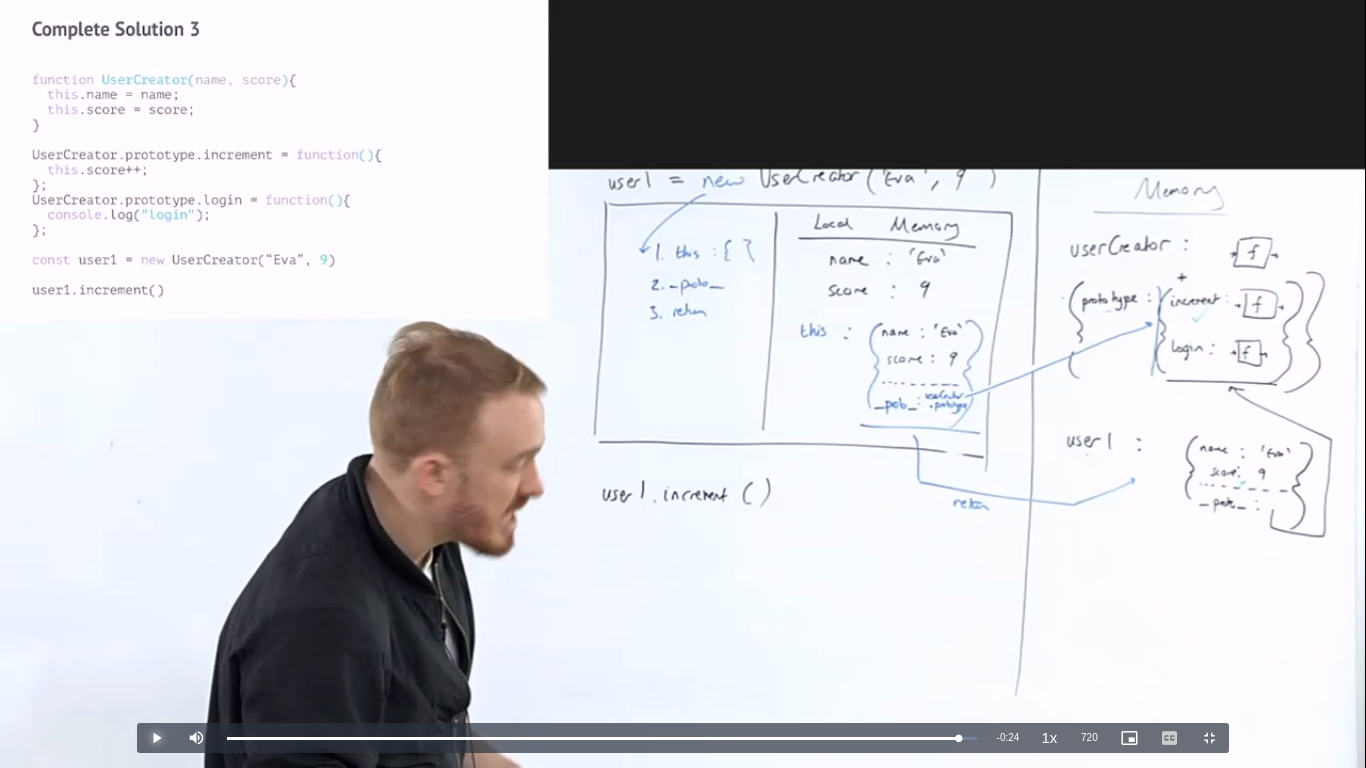 Complete Solution 3
function UserCreator(name, score){
this.name = name;
this.score = score;
}
UserCreator.prototype.increment = function(){
this.score++;
};
UserCreator.prototype.login = function(){
console.log("login");
};
const user1 = new UserCreator(“Eva”, 9)
user1.increment()
user1 = new UserCreator('Eva', 9)
1. this : { }
2. _proto_
3. return
Local Memory
name : 'Eva'
score : 9
this : { name : 'Eva'
score : 9
_proto_ : userCreator
.prototype }
user1.increment ()
return
Memory
userCreator : f
+
{ prototype : { increment : f
login : f } }
user1 : { name : 'Eva'
score : 9
_proto_ : }
-0:24
1x
720
CC